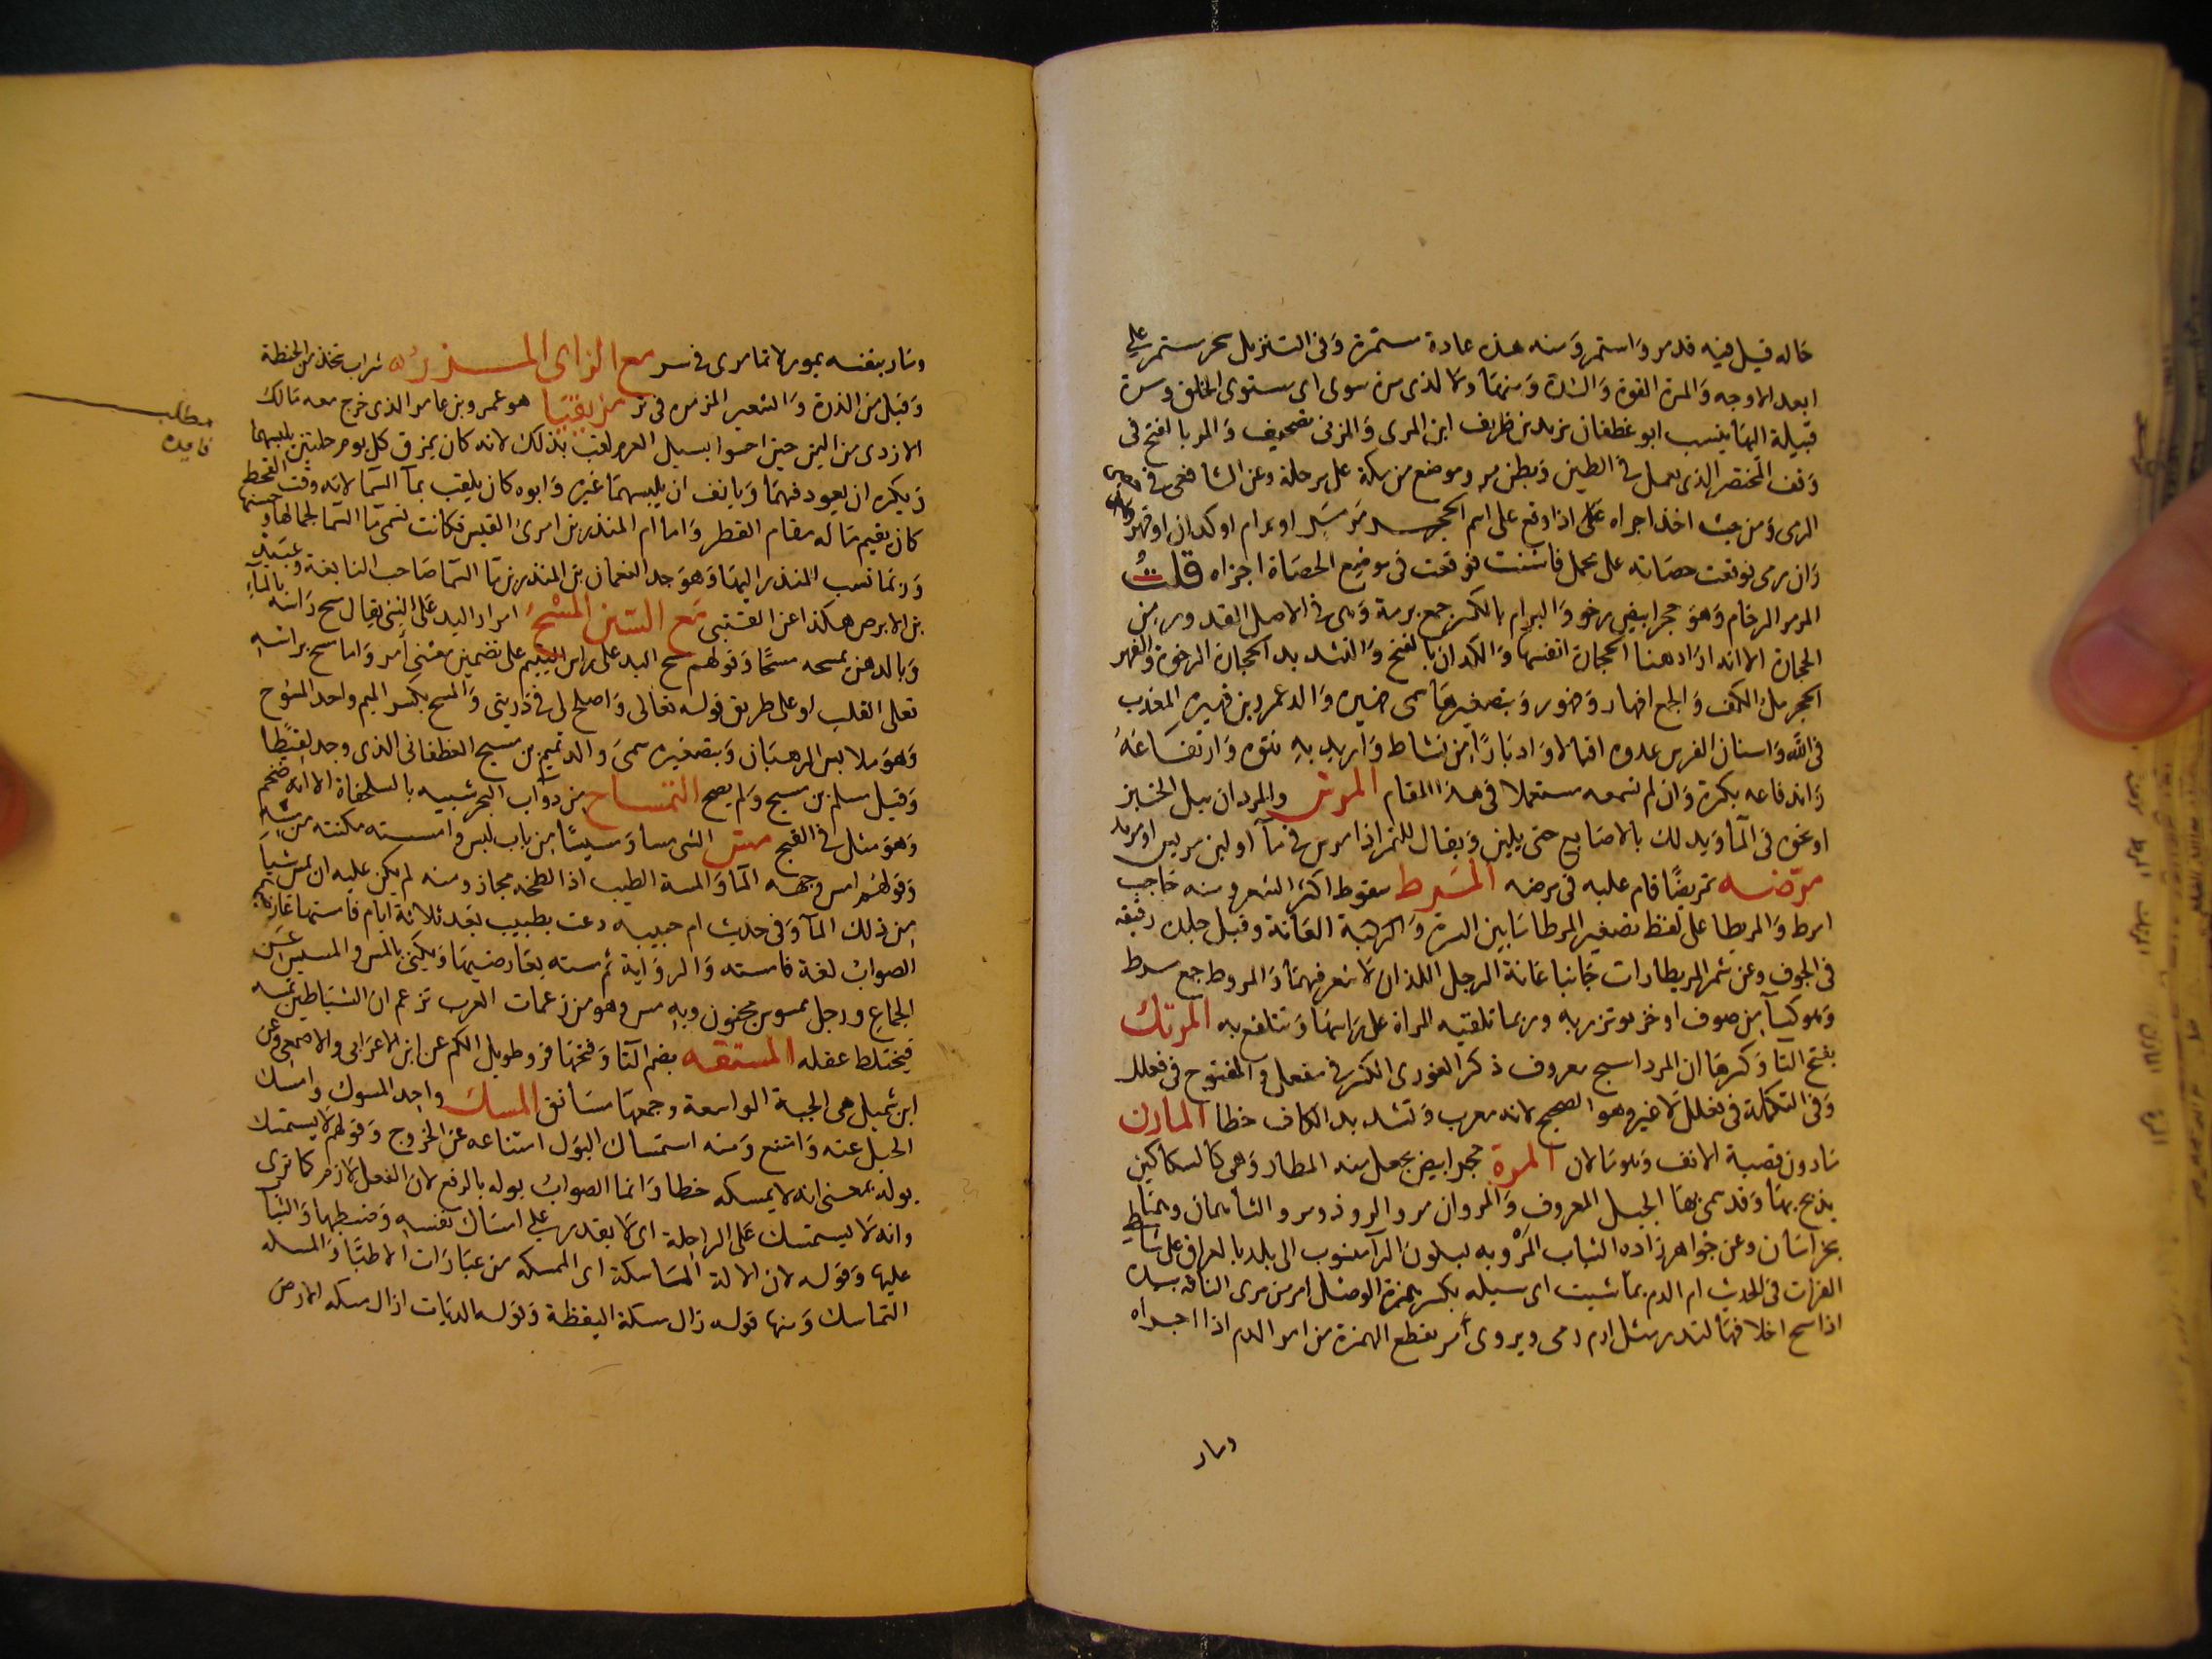 حاله قيل فيه قد مر واستمر ومنه هذه عادة مستمرة وفى التنزيل سحر مستمر على
ابعد الاوجه والمرة القوة والشدة ومنها ولا لذى مرة سوى اى مستوى الخلق ومرة
قبيلة اليها ينسب ابو غطفان يزيد بن ظريف ابن المرى والمزنى تصحيف والمر بالفتح فى
وقف المختصر الذى يعمل فى الطين وبطن مر موضع من مكة على مرحلة وعن الشافعى فى
الرمى ومن حيث اخذ اجزاه على اذا وقع على اسم الحجر مرمر او برام او كدان او فهر
وان رمى فوقعت حصاته على محمل فاستنت فوقعت فى موضع الحصاة اجزاه قلت
المرمر الرخام وهو حجر ابيض رخو والبرام بالكسر جمع برمة وهى فى الاصل القدور من
الحجارة الا انه اراد هنا الحجارة انفسها والكدان بالفتح والتشديد الحجارة الرخوة والفهر
الحجر ملء الكف والجمع افهار وفهور وبتصغيرها سمى فهيرة والد عمرو بن فهيرة المعذب
فى الله واستنان الفرس عدوه اقبالا وادبارا من نشاط واريد به نتوه وارتفاعه
واندفاعه بكرة وان لم نسمعه مستعملا فى هذا المقام المرس والمردان يبل الخبز
او نحوه فى الماء ويدلك بالاصابع حتى يلين ويقال للتمر اذا مرس فى ماء او لبن مريس او مريد
مرّضه تمريضا قام عليه فى مرضه المرط سقوط اكثر الشعر ومنه حاجب
امرط والمريطا على لفظ تصغير المرطا ما بين السرة والعانة وقيل جلدة رقيقة
فى الجوف وعن شمر المريطاوات جانبا عانة الرجل اللذان لا شعر فيهما والمروط جمع مرط
وهو كساء من صوف او خز يوتزر به وربما تلقيه المراة على راسها وتتلفع به المرتك
بفتح التا وكرها ان المرداسنج معروف ذكر الغورى الكسر فى مفعل والمفتوح فى فعلل
وفى التكملة فى فعلل لا غير وهو الصحيح لانه معرب وتشديد الكاف خطا المارن
مادون قصبة الانف وهو ما لان المروة حجر ابيض يجعل منه المطار وهى كالسكاكين
يذبح بها وقد سمى بها الجبل المعروف والمروان مرو الروذ ومرو الشاهجان وهما
بخراسان وعن خواهر زاده الثياب المرْويه بسكون الرا منسوب الى بلد بالعراق على شاطى
الفرات فى الحديث امر الدم بما شيت اى سيله بكسر همزة الوصل امر من مرى الناقة بيده
اذا مسح اخلافها لتدر مثل ارم رمى ويروى أمر بقطع الهمزة من امر الدم اذا اجراه
ومار
ومار بنفسه يمور لا تمارى فى مر مع الزاى المزر شراب يتخذ من الحنطة
وقيل من الذرة والشعير المزمره فى زمر مزيقيا هو عمرو بن عامر الذى خرج معه مالك
الازدى من اليمن حين احسوا بسيل العرم لقب بذلك لانه كان يمزق كل يوم حلتين يلبسهما
ويكره ان يعود فيهما ويانف ان يلبسهما غيره وابوه كان يلقب بماء السما لانه وقت القحط
كان يقيم ماله مقام القطر واما ام المنذر بن امرئ القيس فكانت تسمى ما السما لجمالها وحسنها
وربما نسب المنذر اليها وهو جد النعمان بن المنذر بن ما السما صاحب النابغة وعبيد
بن الابرص هكذا عن القتبى مع السين المسح امرار اليد على الشى يقال مسح راسه بالماء
وبالدهن يمسحه مسحا وقولهم مسح اليد على راس اليتيم على تضمين معنى أمر واما مسح براسه
فعلى القلب او على طريق قوله تعالى واصلح لى فى ذريتى والمسح بكسر الميم واحد المسوح
وهو ملابس الرهبان وبتصغيره سمى والد تميم بن مسيح الغطفانى الذى وجد لقيطا
وقيل سلم بن مسيح ولم يصح التمساح من دواب البحر شبيه بالسلحفاة الا انه ضخم
وهو مثل فى القبح مس الشى مسا ومسيسا من باب لبس وامسسته مكنته من مسه
وقولهم امس وجهه الما والمسة الطيب اذا لطخه مجاز ومنه لم يكن عليه ان يمس شيا
من ذلك الما وفى حديث ام حبيبه دعت بطيب بعد ثلاثة ايام فامستها عارضيها
الصواب لغة فامسته والرواية ثم مسته بعارضيها ويكنى بالمس والمسيس عن
الجماع ورجل ممسوس مجنون وبه مس وهو من زعمات العرب تزعم ان الشياطين تمسه
فيختلط عقله المستقه بضم التا وفتحها فرو طويل الكم عن ابن الاعرابى والاصمعى وعن
ابن شميل هى الجبة الواسعة وجمعها مساتق المسك واحد المسوك وامسك
الحبل عنه وامتنع ومنه استمساك البول امتناعه عن الخروج وقولهم لا يستمسك
بوله بمعنى انه لا يمسكه خطا وانما الصواب بوله بالرفع لان الفعل لازم كما ترى
وانه لا يستمسك على الراحلة اى لا يقدر على امساك نفسه وضبطها والثبات
عليها وقوله لان الالة الماسكة اى الممسكه من عبارات الاطبا والمسكه
التماسك ومنها قوله زال مسكة اليقظة وقوله الديات ازال مسكه الارض
مطلب
فايده